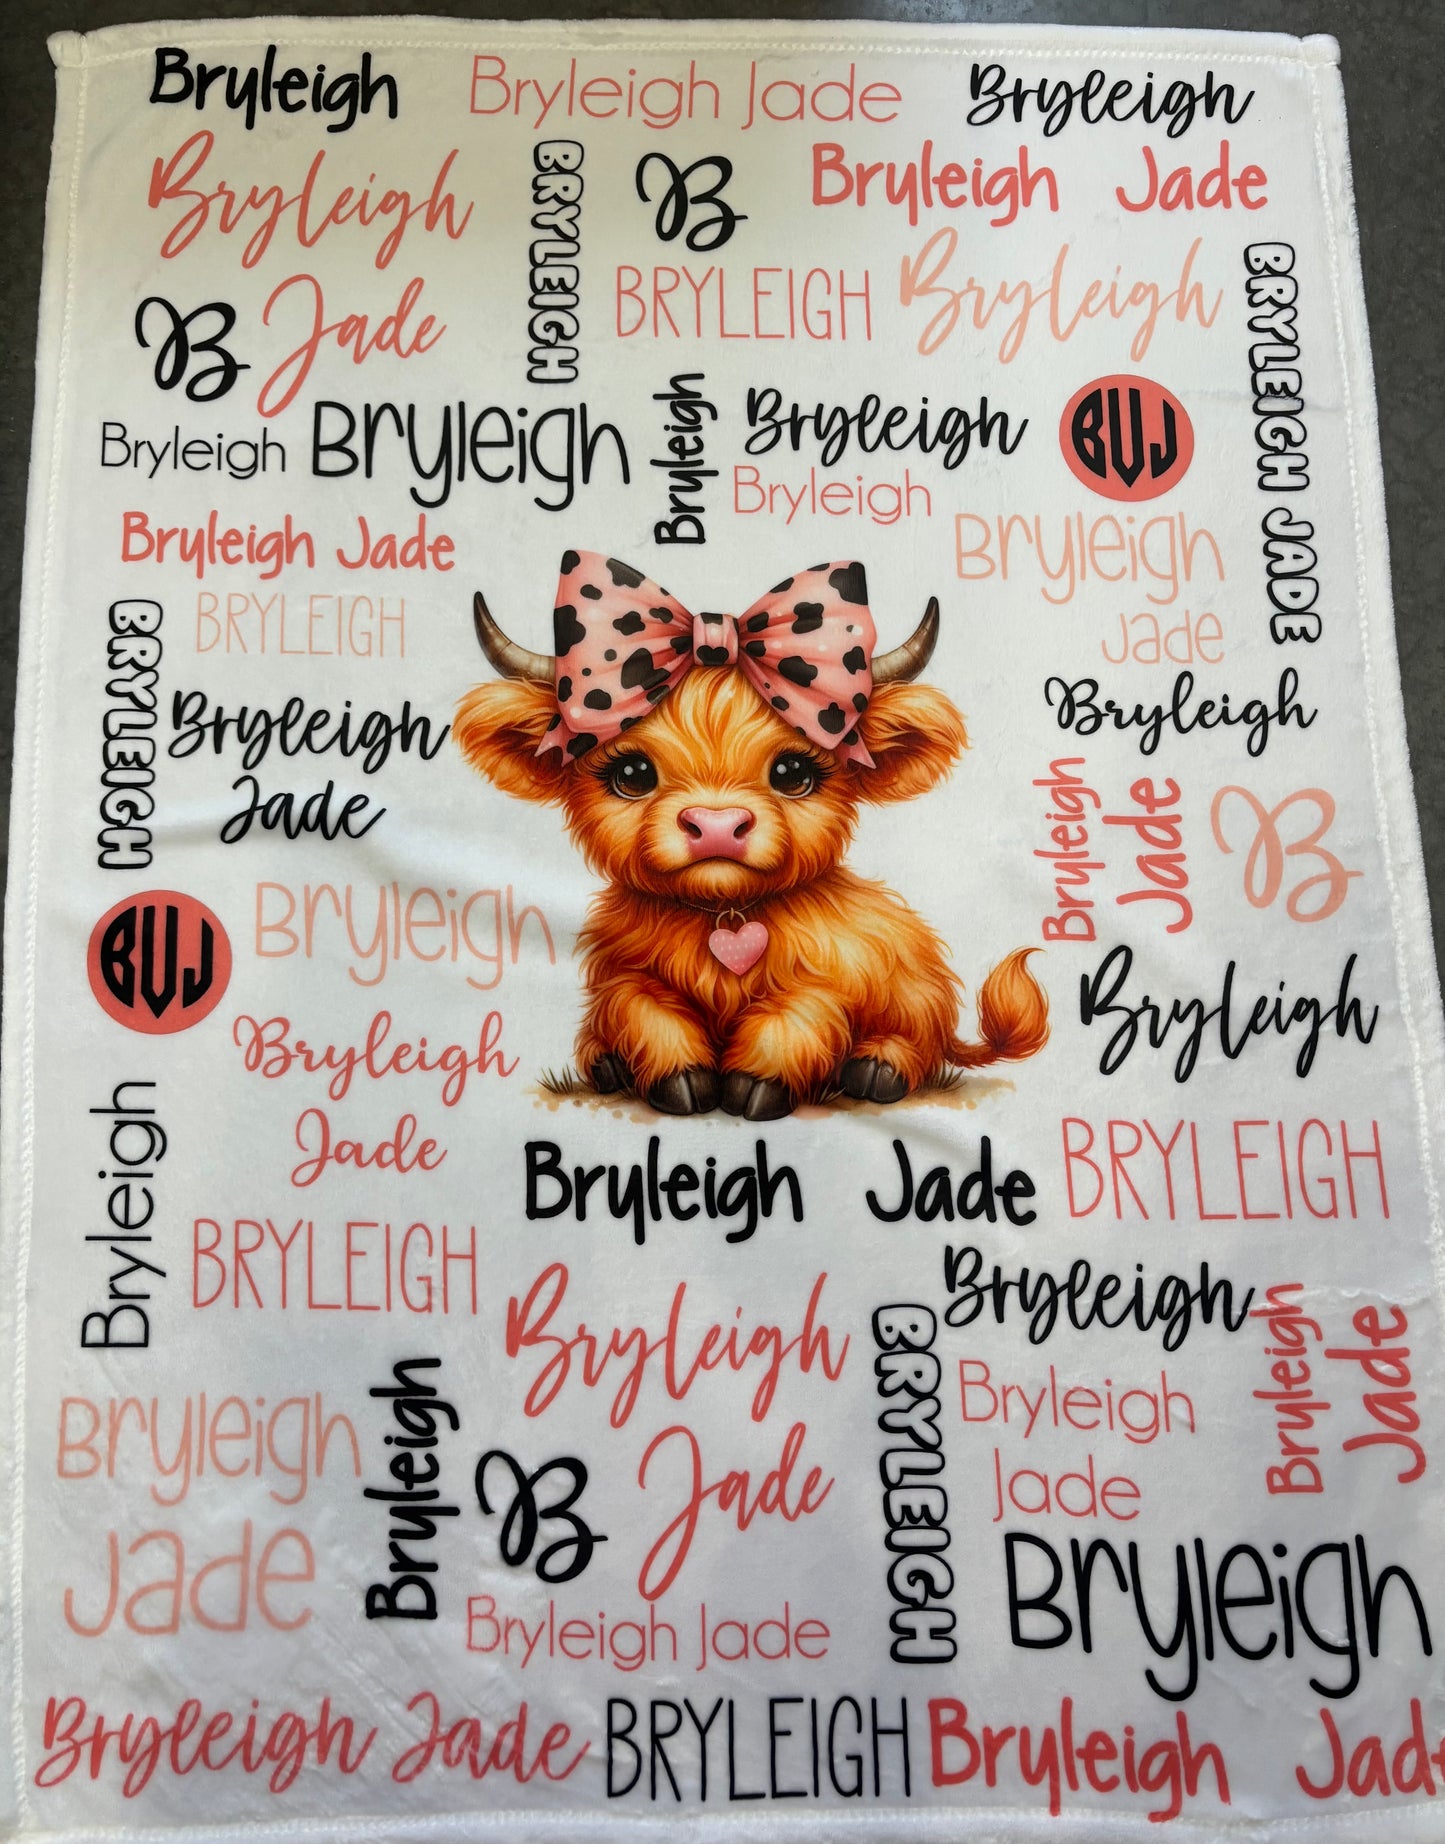 Bryleigh
Bryleigh Jade
Bryleigh
Bryleigh
Jade
BRYLEIGH
B
Bryleigh Jade
B
BRYLEIGH
Bryleigh
BRYLEIGH JADE
Bryleigh
Bryleigh
Bryleigh
Bryleigh
Bryleigh
BVJ
Bryleigh Jade
BRYLEIGH
Bryleigh
Jade
BRYLEIGH
Bryleigh
Jade
Bryleigh
Bryleigh
Jade
B
BVJ
Bryleigh
Bryleigh
Jade
Bryleigh
Bryleigh
Bryleigh Jade
BRYLEIGH
BRYLEIGH
Bryleigh
Jade
Bryleigh
BRYLEIGH
Bryleigh
Jade
Bryleigh
Jade
Bryleigh
Jade
Bryleigh
B
Bryleigh Jade
Bryleigh
Bryleigh Jade
BRYLEIGH
Bryleigh Jade